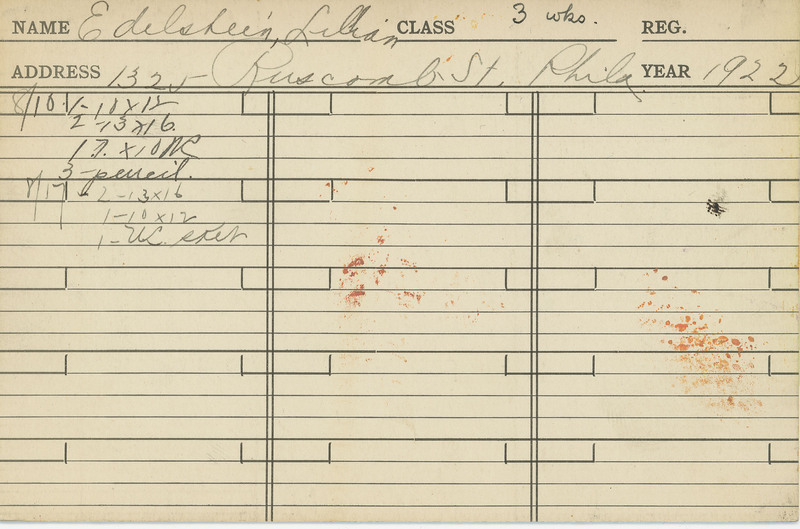 NAME Edelstein, Lillian CLASS 3 wks. REG.
ADDRESS 1325 Ruscomb St. Phila YEAR 1922
8/10 1-10x12
2-13x16.
17. x10 WC
3-pencil.
8/17 - 2-13x16
1-10x12
1-WC. sket